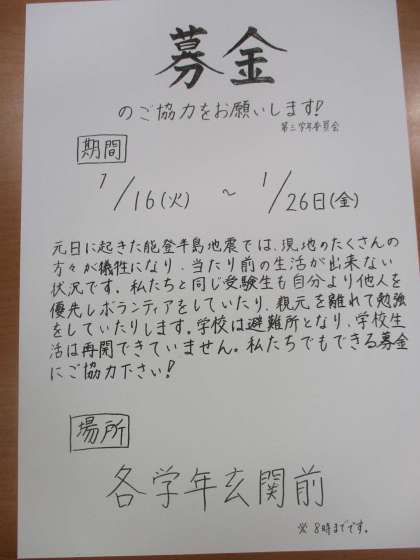 募金
のご協力をお願いします!
第三学年委員会
期間
1/16(火) ~ 1/26日(金)
元日に起きた能登半島地震では、現地のたくさんの
方々が犠牲になり、当たり前の生活が出来ない
状況です。私たちと同じ受験生も自分より他人を
優先しボランティアをしていたり、親元を離れて勉強
をしていたりします。学校は避難所となり、学校生
活は再開できていません。私たちでもできる募金
にご協力下さい!
場所
各学年玄関前
※8時までです。